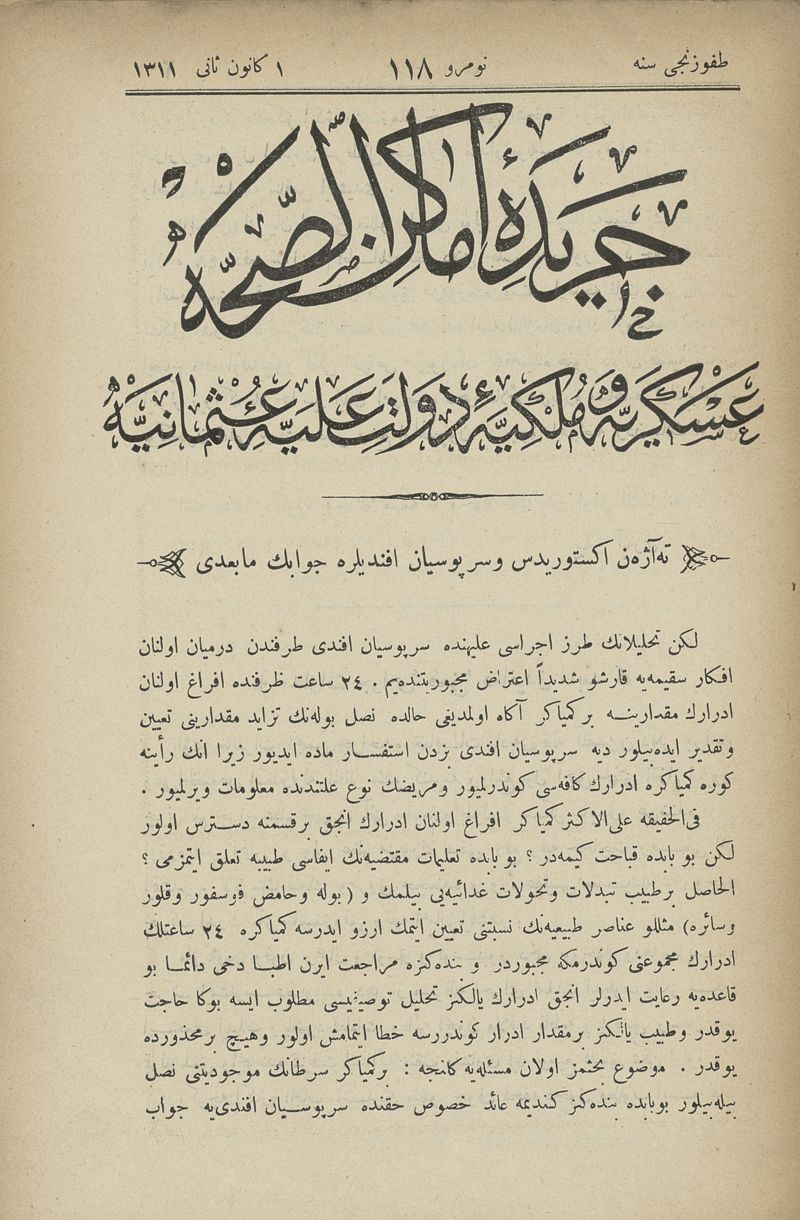 طقوزنجی سنه نومرو ١١٨ ١ كانون ثانی ١٣١١
جریدهٔ اماكن الصحه
عسكریه و ملكیهٔ دولت علیهٔ عثمانیه
ته‌آژه‌ن اكستوریدس وسرپوسیان افندیلره جوابك مابعدی
لكن تحلیلاتك طرز اجراسی علیهنده سرپوسیان افندی طرفندن درمیان اولنان
افكار سقیمه‌یه قارشو شدیداً اعتراض مجبوریتنده‌یم . ٢٤ ساعت ظرفنده افراغ اولنان
ادرارك مقدارینــه بركمیاكر آكاه اولمدیغی حالده نصل بوله‌نك تزاید مقدارینی تعیین
وتقدیر ایده‌بیلور دیه سرپوسیان افندی بزدن استفسـار ماده ایدیور زیرا انك رأینه
كوره كمیاكره ادرارك كافه‌سی كوندرلمیور ومریضك نوع علتندنده معلومات ویرلمیور .
فی‌الحقیقه علی‌الاكثر كمیاكر افراغ اولنان ادرارك انجق برقسمنه دسـترس اولور
لكن بو بابده قباحت كیمه‌در ؟ بو بابده تعلیمات مقتضیه‌نك ایفاسی طبیبه تعلق ایتمزمی ؟
الحاصل برطبیب تبدلات وتحولات غدائیه‌یی بیلمك و ( بوله وحامض فوسفور وقلور
وسائره) مثللو عناصر طبیعیه‌نك نسبتنی تعیین ایتمك ارزو ایدرسه كمیاكره ٢٤ ساعتلك
ادرارك مجموعنی كوندرمكه مجبوردر و بنده‌كزه مراجعت ایرن اطبـا دخی دائمـا بو
قاعده‌یه رعایت ایدرلر انجق ادرارك یالكز تحلیل توصیفیسی مطلوب ایسه بوكا حاجت
یوقدر وطبیب یالكز برمقدار ادرار كوندررسه خطا ایتمامش اولور وهیچ برمحذورده
یوقدر . موضوع بحثمز اولان مسئله‌یه كلنجه : بركمیاكر سرطانك موجودیتنی نصل
بیله‌بیلور بوبابده بنده‌كز كندیمه عائد خصوص حقنده سرپوسـیان افندی‌یه جواب